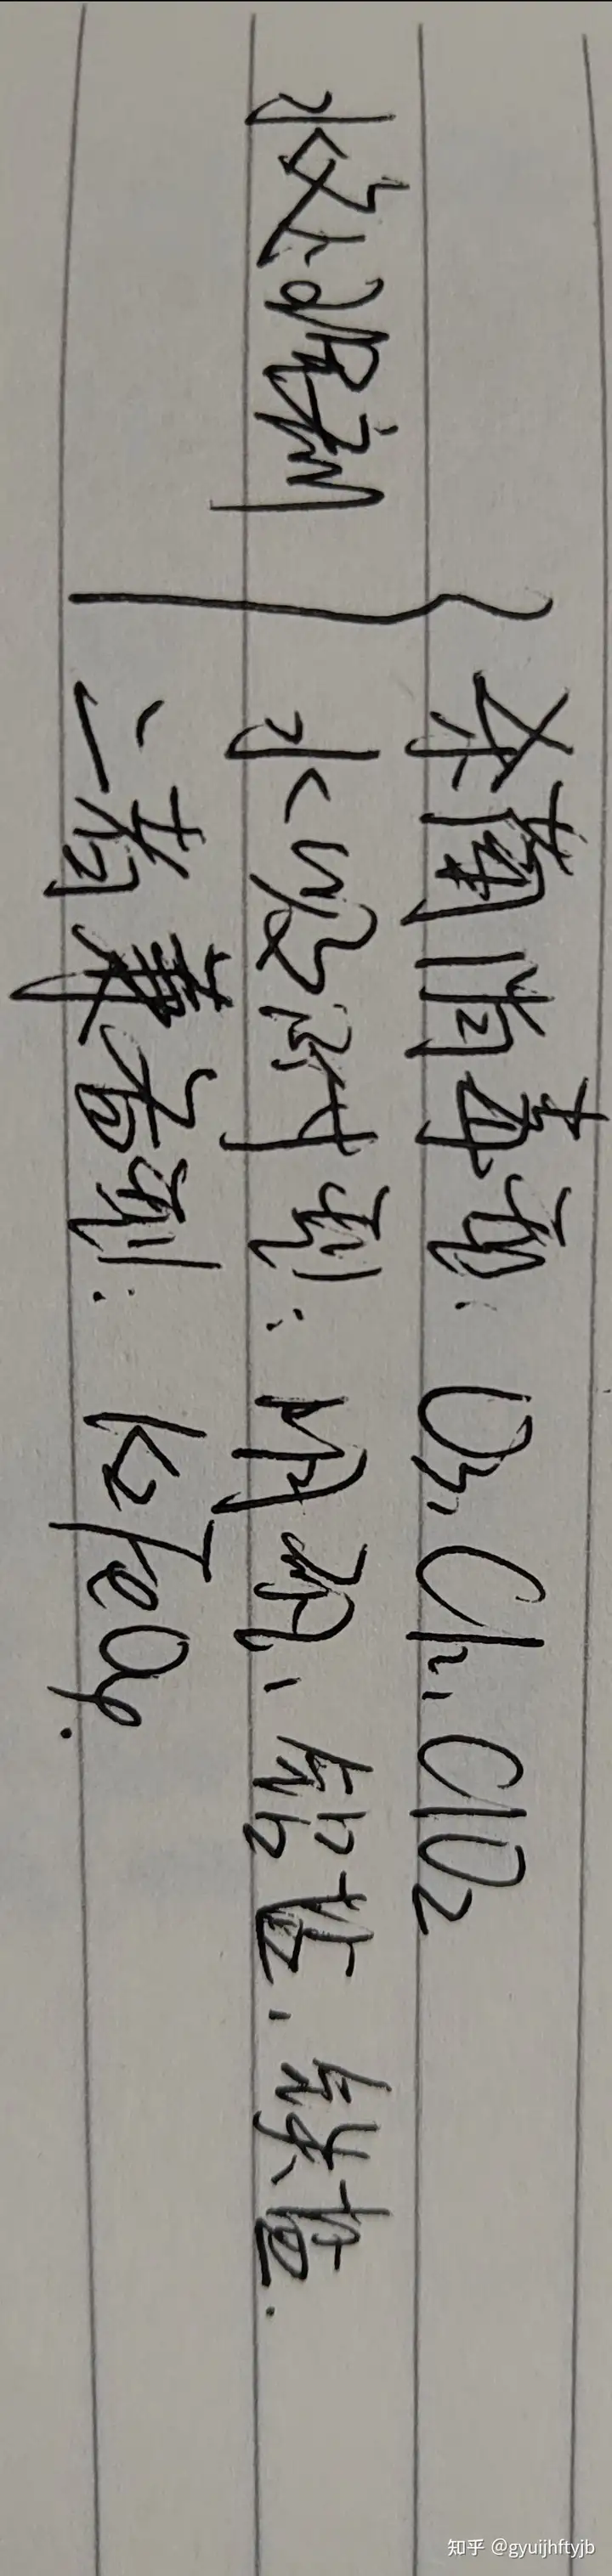 水处理剂
杀菌消毒剂: O3, Cl2, ClO2
水吸附型: 明矾、铝盐、铁盐.
二者兼有型: K2FeO4.
知乎 @gyuijhftyjb